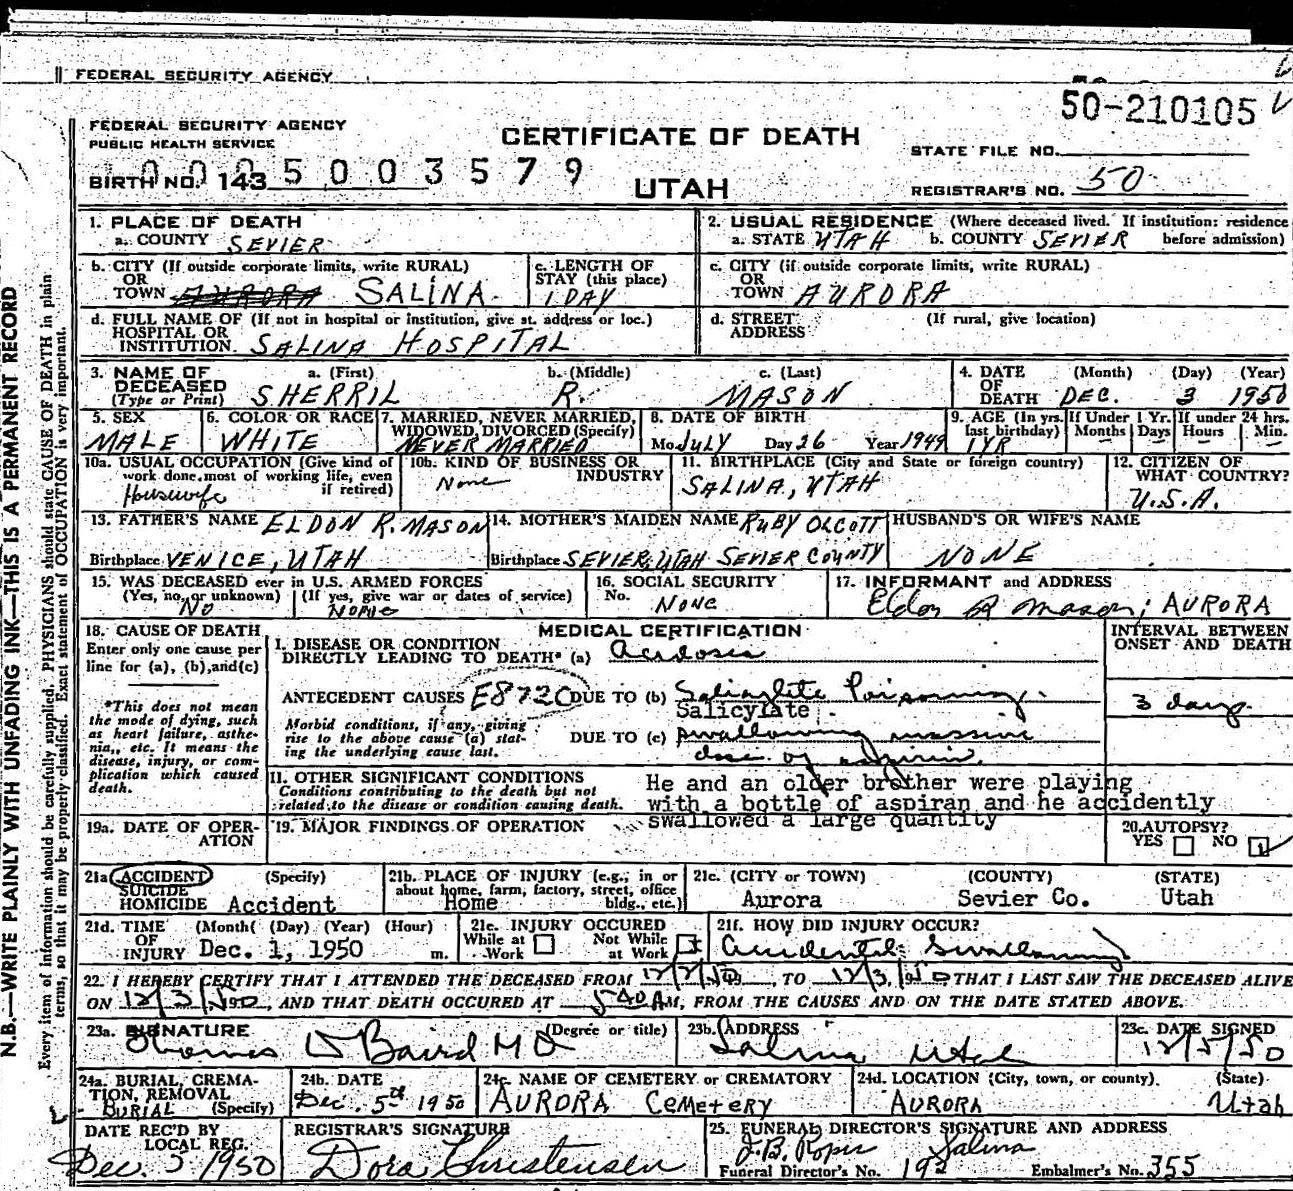 FEDERAL SECURITY AGENCY
50-210105
FEDERAL SECURITY AGENCY
PUBLIC HEALTH SERVICE
CERTIFICATE OF DEATH
STATE FILE NO.
BIRTH NO. 143
0005003579
UTAH
REGISTRAR'S NO. 50
1. PLACE OF DEATH
a. COUNTY SEVIER
2. USUAL RESIDENCE (Where deceased lived. If institution: residence before admission)
a. STATE UTAH b. COUNTY SEVIER
b. CITY (If outside corporate limits, write RURAL)
OR
TOWN AURORA SALINA
c. LENGTH OF
STAY (this place)
1 DAY
c. CITY (if outside corporate limits, write RURAL)
OR
TOWN AURORA
d. FULL NAME OF (If not in hospital or institution, give st. address or loc.)
HOSPITAL OR
INSTITUTION. SALINA HOSPITAL
d. STREET (If rural, give location)
ADDRESS
3. NAME OF a. (First) b. (Middle) c. (Last)
DECEASED
(Type or Print) SHERRIL R. MASON
4. DATE (Month) (Day) (Year)
OF
DEATH DEC. 3 1950
5. SEX
MALE
6. COLOR OR RACE
WHITE
7. MARRIED, NEVER MARRIED,
WIDOWED, DIVORCED (Specify)
NEVER MARRIED
8. DATE OF BIRTH
Mo. JULY Day 26 Year 1949
9. AGE (In yrs. last birthday)
1 YR
If Under 1 Yr.
Months Days
If under 24 hrs.
Hours Min.
10a. USUAL OCCUPATION (Give kind of
work done most of working life, even
if retired)
Housewife
10b. KIND OF BUSINESS OR
INDUSTRY
None
11. BIRTHPLACE (City and State or foreign country)
SALINA, UTAH
12. CITIZEN OF
WHAT COUNTRY?
U.S.A.
13. FATHER'S NAME ELDON R. MASON
Birthplace VENICE, UTAH
14. MOTHER'S MAIDEN NAME RUBY OLCOTT
Birthplace SEVIER, UTAH SEVIER COUNTY
HUSBAND'S OR WIFE'S NAME
NONE
15. WAS DECEASED ever in U.S. ARMED FORCES
(Yes, no, or unknown) (If yes, give war or dates of service)
NO NONE
16. SOCIAL SECURITY
No. NONE
17. INFORMANT and ADDRESS
Eldon R Mason; AURORA
18. CAUSE OF DEATH
Enter only one cause per
line for (a), (b), and (c)
*This does not mean
the mode of dying, such
as heart failure, asthe-
nia, etc. It means the
disease, injury, or com-
plication which caused
death.
MEDICAL CERTIFICATION
INTERVAL BETWEEN
ONSET AND DEATH
I. DISEASE OR CONDITION
DIRECTLY LEADING TO DEATH* (a) acidosis
ANTECEDENT CAUSES E8720 DUE TO (b) Salicylate Poisoning.
Salicylate
3 days
Morbid conditions, if any, giving
rise to the above cause (a) stat-
ing the underlying cause last.
DUE TO (c) swallowing massive
dose of aspirin.
II. OTHER SIGNIFICANT CONDITIONS
Conditions contributing to the death but not
related to the disease or condition causing death.
He and an older brother were playing
with a bottle of aspiran and he accidently
swallowed a large quantity
19a. DATE OF OPER-
ATION
19. MAJOR FINDINGS OF OPERATION
20. AUTOPSY?
YES NO
21a. ACCIDENT (Specify)
SUICIDE
HOMICIDE Accident
21b. PLACE OF INJURY (e.g., in or
about home, farm, factory, street, office
bldg., etc.)
Home
21c. (CITY or TOWN) (COUNTY) (STATE)
Aurora Sevier Co. Utah
21d. TIME (Month) (Day) (Year) (Hour)
OF
INJURY Dec. 1, 1950 m.
21e. INJURY OCCURED
While at Work Not While at Work
21f. HOW DID INJURY OCCUR?
Accidental Swallowing
22. I HEREBY CERTIFY THAT I ATTENDED THE DECEASED FROM 12/2/50, TO 12/3/50, THAT I LAST SAW THE DECEASED ALIVE
ON 12/3/50, AND THAT DEATH OCCURED AT 5 40 AM, FROM THE CAUSES AND ON THE DATE STATED ABOVE.
23a. SIGNATURE (Degree or title)
Thomas D Baird MD
23b. ADDRESS
Salina Utah
23c. DATE SIGNED
12/5/50
24a. BURIAL, CREMA-
TION, REMOVAL
BURIAL (Specify)
24b. DATE
Dec. 5th 1950
24c. NAME OF CEMETERY or CREMATORY
AURORA CEMETERY
24d. LOCATION (City, town, or county) (State)
AURORA Utah
DATE REC'D BY
LOCAL REG.
Dec. 5 1950
REGISTRAR'S SIGNATURE
Dora Christensen
25. FUNERAL DIRECTOR'S SIGNATURE AND ADDRESS
J.B. Roper Salina
Funeral Director's No. 192 Embalmer's No. 355
N.B.—WRITE PLAINLY WITH UNFADING INK—THIS IS A PERMANENT RECORD
Every item of information should be carefully supplied. PHYSICIANS should state CAUSE OF DEATH in plain
terms, so that it may be properly classified. Exact statement of OCCUPATION is very important.